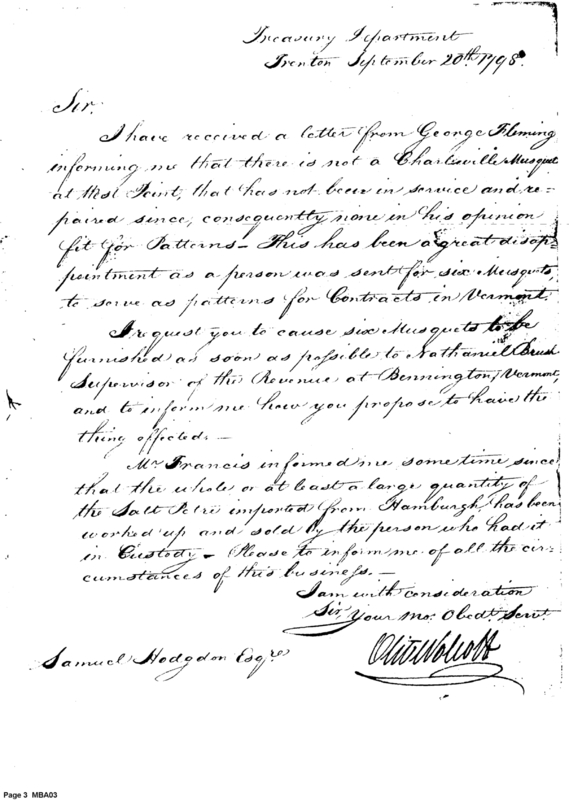 Treasury Department
Trenton September 20th. 1798.
Sir.
I have received a letter from George Fleming
informing me that there is not a Charleville Musquet
at West Point, that has not been in service and re=
paired since, consequently none in his opinion
fit for Patterns - This has been a great disap=
pointment as a person was sent for six Musquets,
to serve as patterns for Contracts in Vermont.
I request you to cause six Musquets to be
furnished as soon as possible to Nathaniel Brush
Supervisor of the Revenue at Bennington, Vermont,
and to inform me how you propose to have the
thing effected. -
Mr. Francis informed me some time since
that the whole or at least a large quantity of
the Salt Petre imported from Hamburgh, has been
worked up and sold by the person who had it
in Custody - Please to inform me of all the cir=
cumstances of this business. -
I am with consideration
Sir, Your Mo. Obedt. Servt.
Oliv Wolcott
Samuel Hodgdon Esqre
Page 3 MBA03